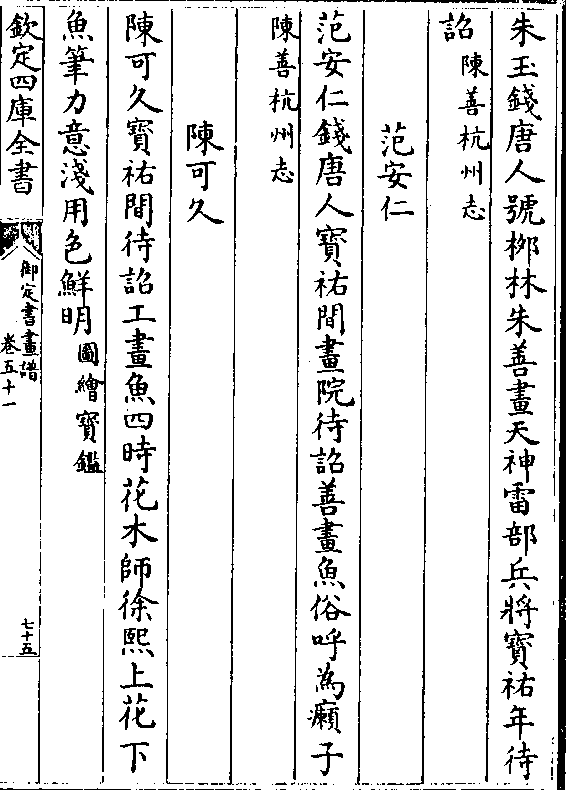 朱玉錢唐人號栁林朱善畫天神雷部兵將寳祐年待
詔陳善杭州志
范安仁
范安仁錢唐人寳祐間畫院待詔善畫魚俗呼為癩子
陳善杭州志
陳可久
陳可久寳祐間待詔工畫魚四時花木師徐熙上花下
魚筆力意淺用色鮮明圖繪寳鑑
欽定四庫全書
御定書畫譜
卷五十一
七十五